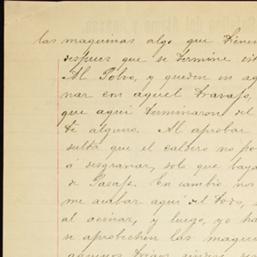 las maquinas algo que tienen
despues que se termine est
Al Polvo, y queden en ag
nar con aquel travajo,
que aqui terminaron del
te alguno. Al aprobar
sulta que el caldero no po
á desgranar, solo que baya
de Pasaje. En cambio nos
me acabar aqui del todo, s
al ocinar, y luego, yo ha
se aprobechen las maqui